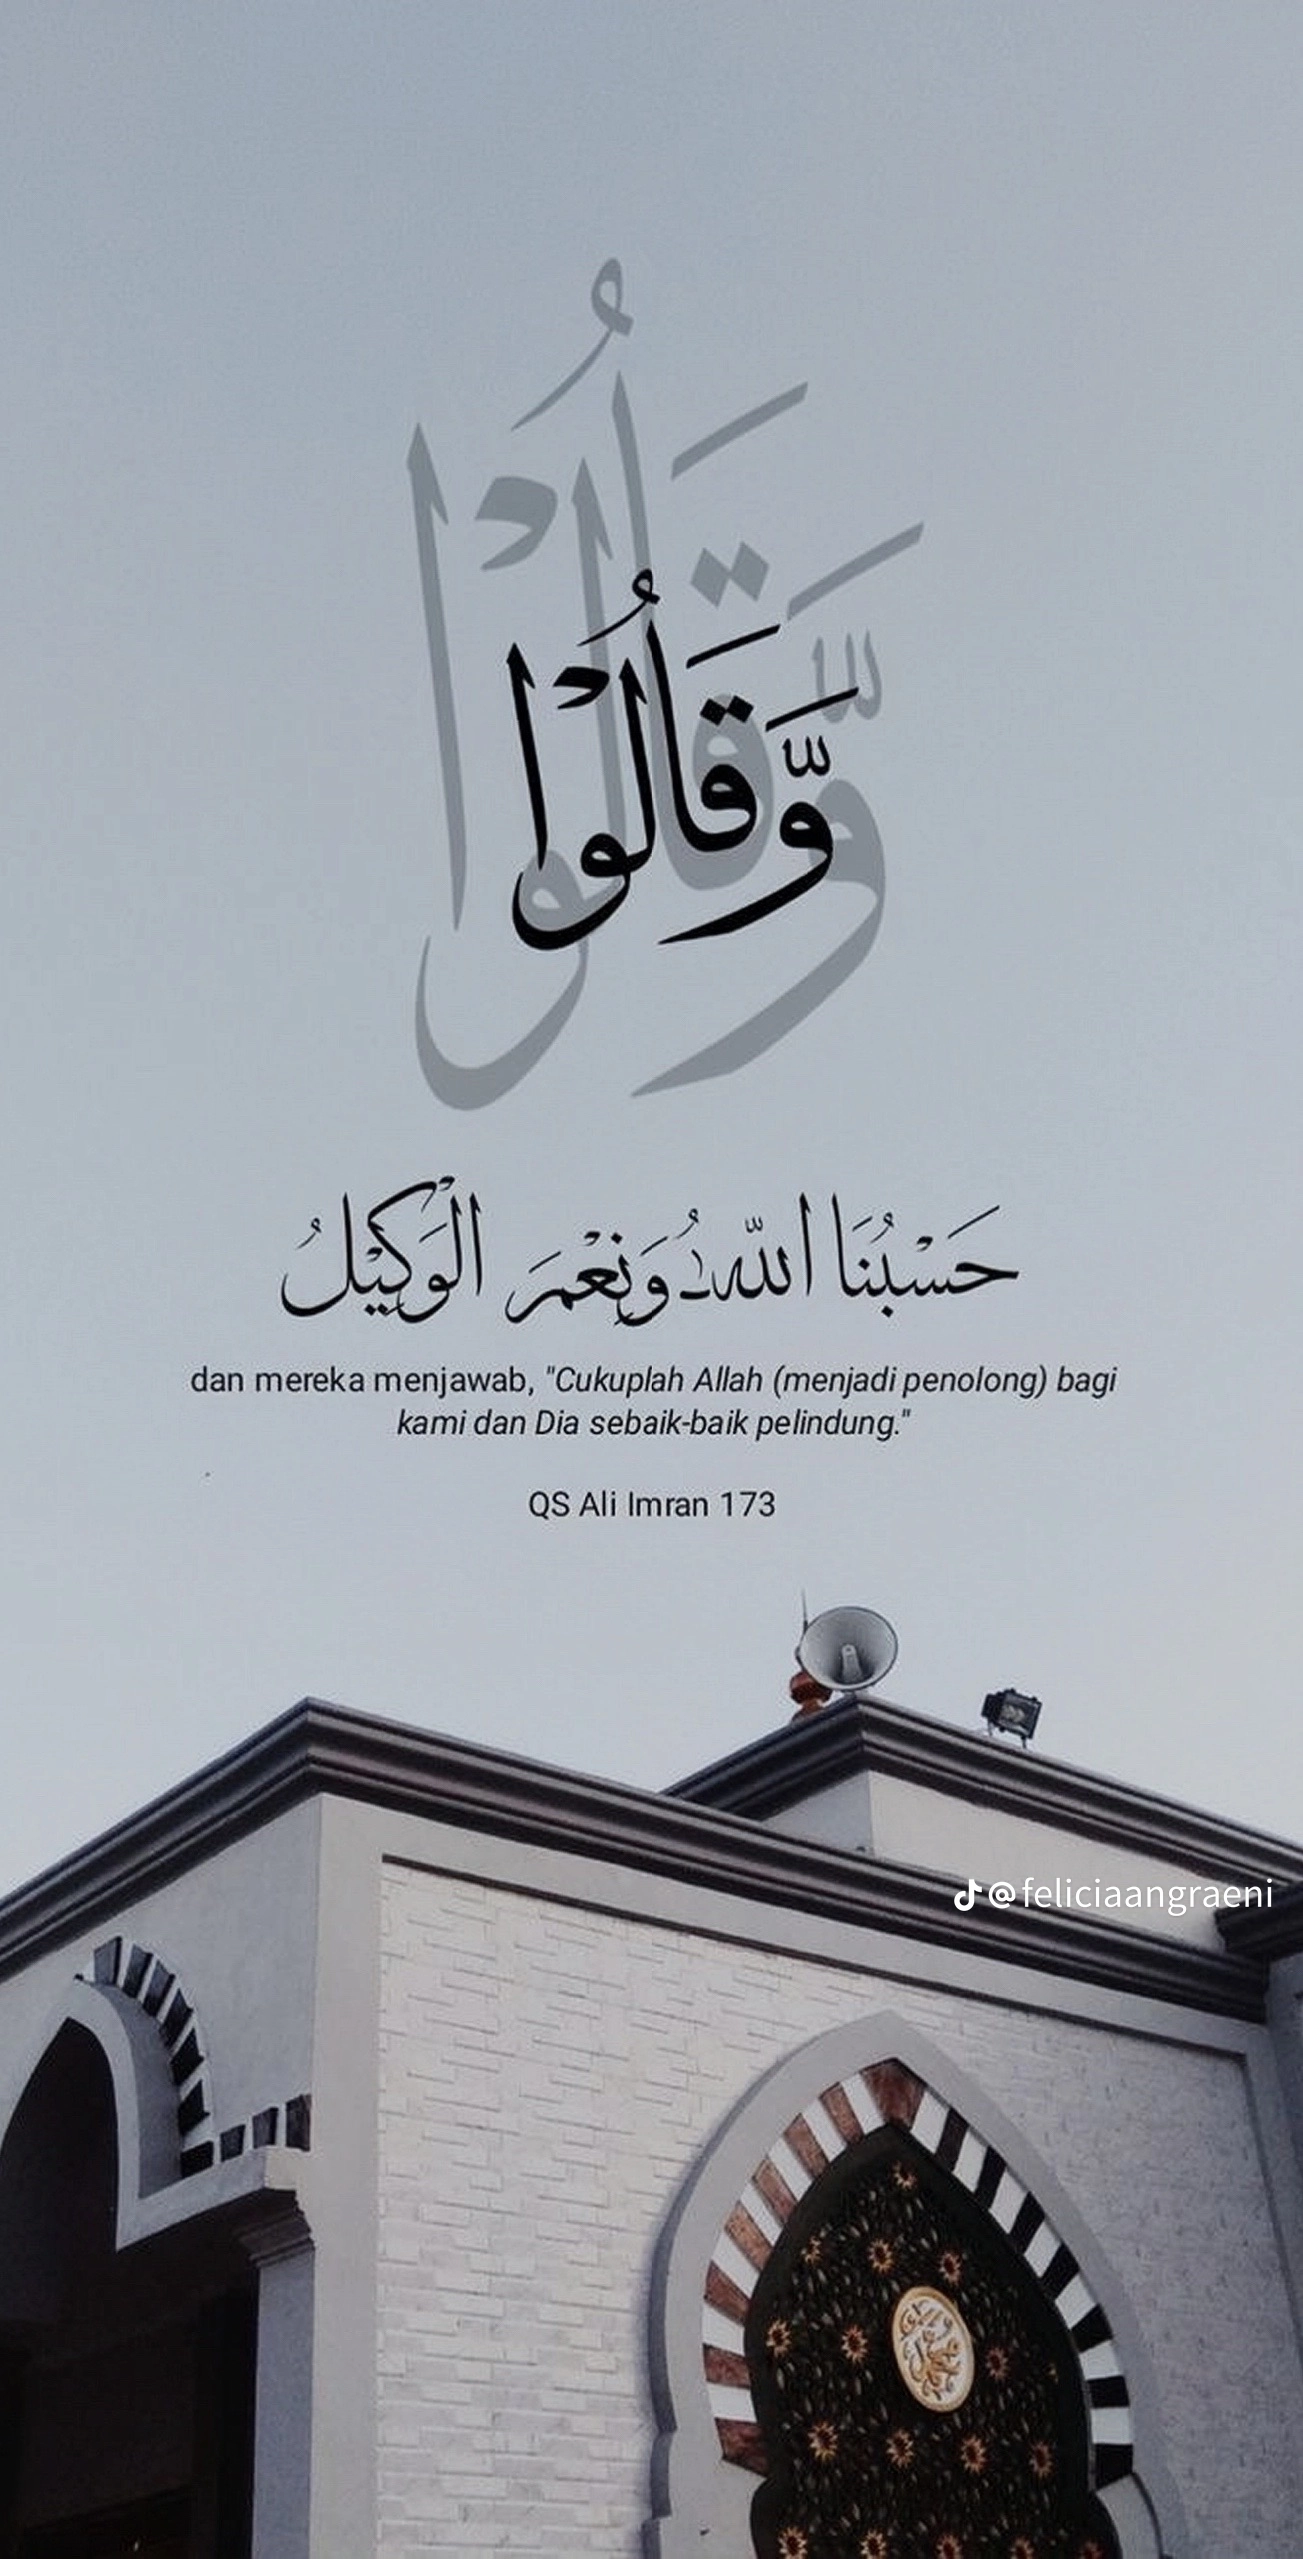 وَّقَالُوْا
حَسْبُنَا اللّٰهُ وَنِعْمَ الْوَكِيْلُ
dan mereka menjawab, "Cukuplah Allah (menjadi penolong) bagi
kami dan Dia sebaik-baik pelindung."
QS Ali Imran 173
@feliciaangraeni